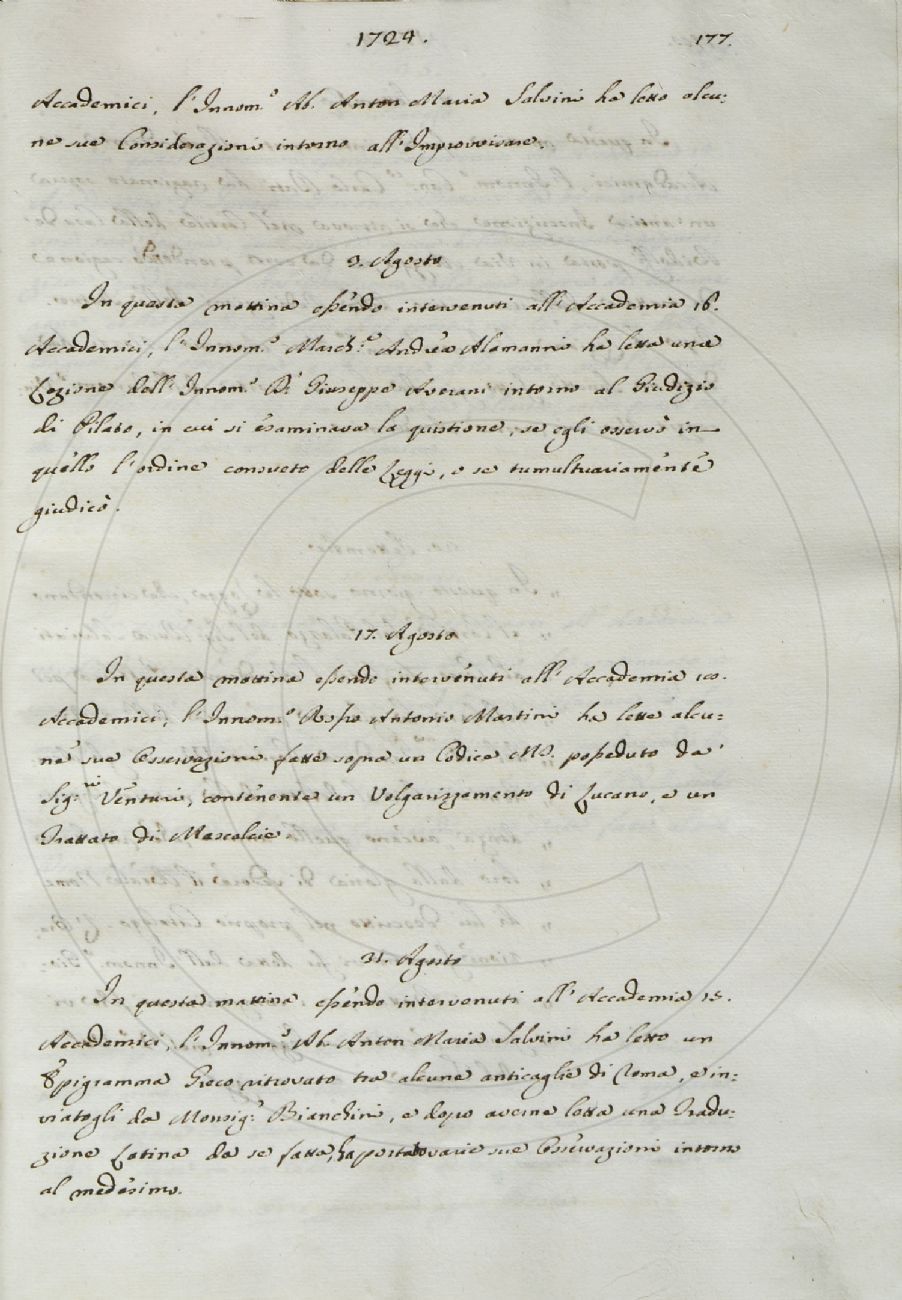 1724.
177.
Accademici, l'Innom.º Ab. Anton Maria Salvini ha letto alcu=
ne sue Considerazioni intorno all'Improvvisare.
3. Agosto
In questa mattina essendo intervenuti all'Accademia 16.
Accademici, l'Innom.º March.º Andrea Alamanni ha letta una
Lezione dell'Innom.º D.r Giuseppe Averani intorno al Giudizio
di Pilato, in cui si esaminava la quistione, se egli osservò in
quello l'ordine consueto delle Leggi, o se tumultuariamente
giudicò.
17. Agosto
In questa mattina essendo intervenuti all'Accademia 10.
Accademici, l'Innom.º Rosso Antonio Martini ha lette alcu=
ne sue Osservazioni fatte sopra un Codice MS. posseduto da'
Sig.ri Venturi, contenente un Volgarizzamento di Lucano, e un
Trattato di Mascalcie.
31. Agosto
In questa mattina essendo intervenuti all'Accademia 15.
Accademici, l'Innom.º Ab. Anton Maria Salvini ha letto un
Epigramma Greco ritrovato tra alcune anticaglie di Roma, e in=
viatogli da Monsig.r Bianchini, e dopo averne letta una Tradu=
zione Latina da se fatta, ha portato varie sue Osservazioni intorno
al medesimo.